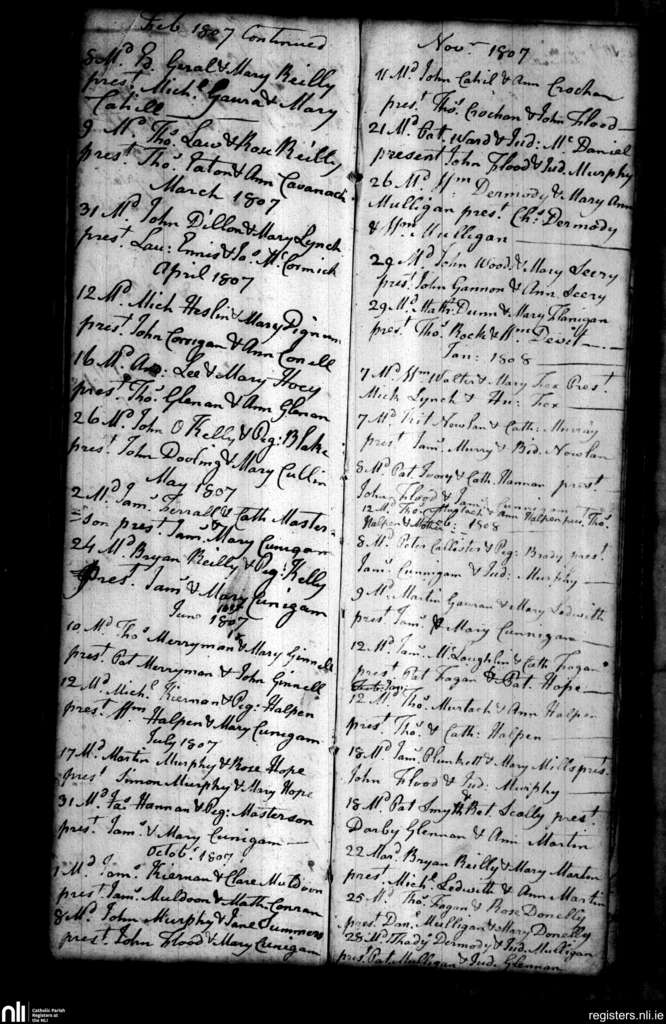 Feb 1807 Continued
8 Md P. Geral & Mary Reilly
prest. Michl. Gaura & Mary
Cahill
9 Md Thos. Law & Rose Reilly
prest. Thos. Eaton & Ann Cavanach
March 1807
31 Md John Dillon & Mary Lynch
prest. Lau: Ennis & Js. McCormick
April 1807
12 Md Mich Heslin & Mary Dignum
prest. John Corrigan & Ann Conell
16 Md And: Lee & Mary Hoey
prest. Thos. Glenan & Ann Glenan
26 Md John O Kelly & Peg: Blake
prest. John Dooling & Mary Cullin
May 1807
2 Md Jams. Ferrall & Cath Master=
=son prest Jams. & Mary Cunigam
24 Md Bryan Reilly & Peg: Kelly
prest. Jams. & Mary Cunigam
June 1807
10 Md Thos. Merryman & Mary Ginnell
prest. Pat Merryman & John Ginnell
12 Md Michl. Kiernan & Peg: Halpen
prest. Wm Halpen & Mary Cunigam
July 1807
17 Md Martin Murphy & Rose Hope
prest. Simon Murphy & Mary Hope
31 Md Jas. Hannan & Peg: Masterson
prest. Jams. & Mary Cunigam
Octobr. 1807
1 Md Jams. Kiernan & Clare Muldoon
prest. Jams. Muldoon & Math Conran
8 Md John Murphy & Jane Summers
prest. John Flood & Mary Cunigam
Novr. 1807
11 Md John Cahil & Ann Crochan
prest. Thos. Crochan & John Flood
21 Md Pat. Ward & Jud: Mc Daniel
present John Flood & Jud. Murphy
26 Md Wm Dermody & Mary Ann
Mulligan prest. Chs. Dermody
& Wm. Mulligan
29 Md John Wood & Mary Seery
prest. John Gannon & Ann Seery
29 Md Matt: Dunn & Mary Flanigan
prest. Thos. Rock & Wm
Jan: 1808
7 Md Wm Walter & Mary Fox Prest.
Mick Lynch & Fox
7 Md Kit Nowlan & Cath: Murray
prest Jams. Murry & Bid. Nowlan
8 Md Pat Ivory & Cath Hannan prest
John Flood & Jams. Cunningam
12 Md Thos. & Ann Halpen pres. Thos.
Halpen & : 1808
8 Md Peter Callister & Peg: Brady prest.
Jams. Cunnigam & Jud: Murphy
9 Md Martin Gauran & Mary Ledwith
prest Jams. & Mary Cunnigam
12 Md Jams. McLoughlin & Cath Fagan
prest Pat Fagan & Pat. Hope
12 Md Thos. Murtach & Ann Halpen
prest Thos. & Cath: Halpen
18 Md Jams. Plunkett & Mary Mills prest.
John Flood & Jud: Murphy
18 Md Pat Smyth & Bet. Scally prest.
Darby Glennan & Ann Martin
22 Mard. Bryan Reilly & Mary Marten
prest. Michl. Ledwith & Ann Martin
25 Md Thos. Fagan & Rose Donelly
prest. Danl. Mulligan & Mary Donelly
28 Md Thady Dermody & Jud. Mulligan
prest. Pat. Mulligan & Jud. Glennan
nli
Catholic Parish
Registers at
the NLI
registers.nli.ie